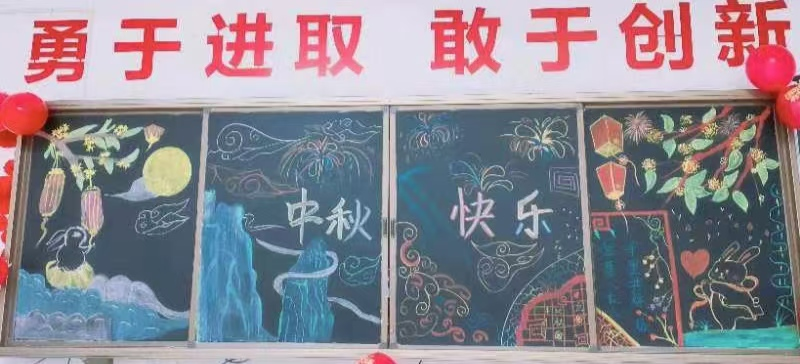 勇于进取 敢于创新
中秋 快乐